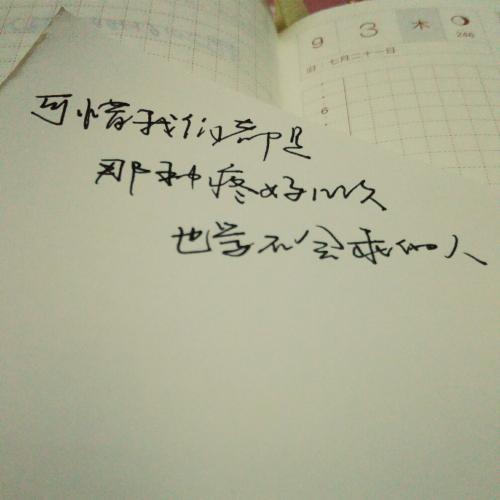 9 3 木
246
旧 七月二十一日
6
可惜我们都是
那种疼好几次
也学不会乖的人